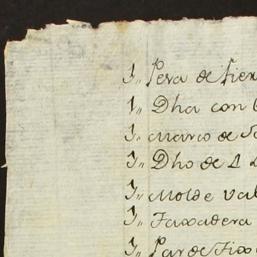 1,, Pesa de fier
1,, Dha con
1,, Marco de
1,, Dho de 2
1,, Molde val
1,, Taxadera
1,, Par de Tix